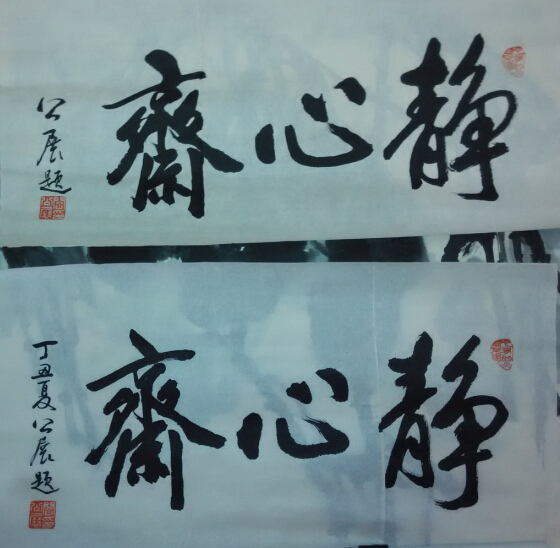 靜心齋
公展題
靜心齋
丁丑夏公展題